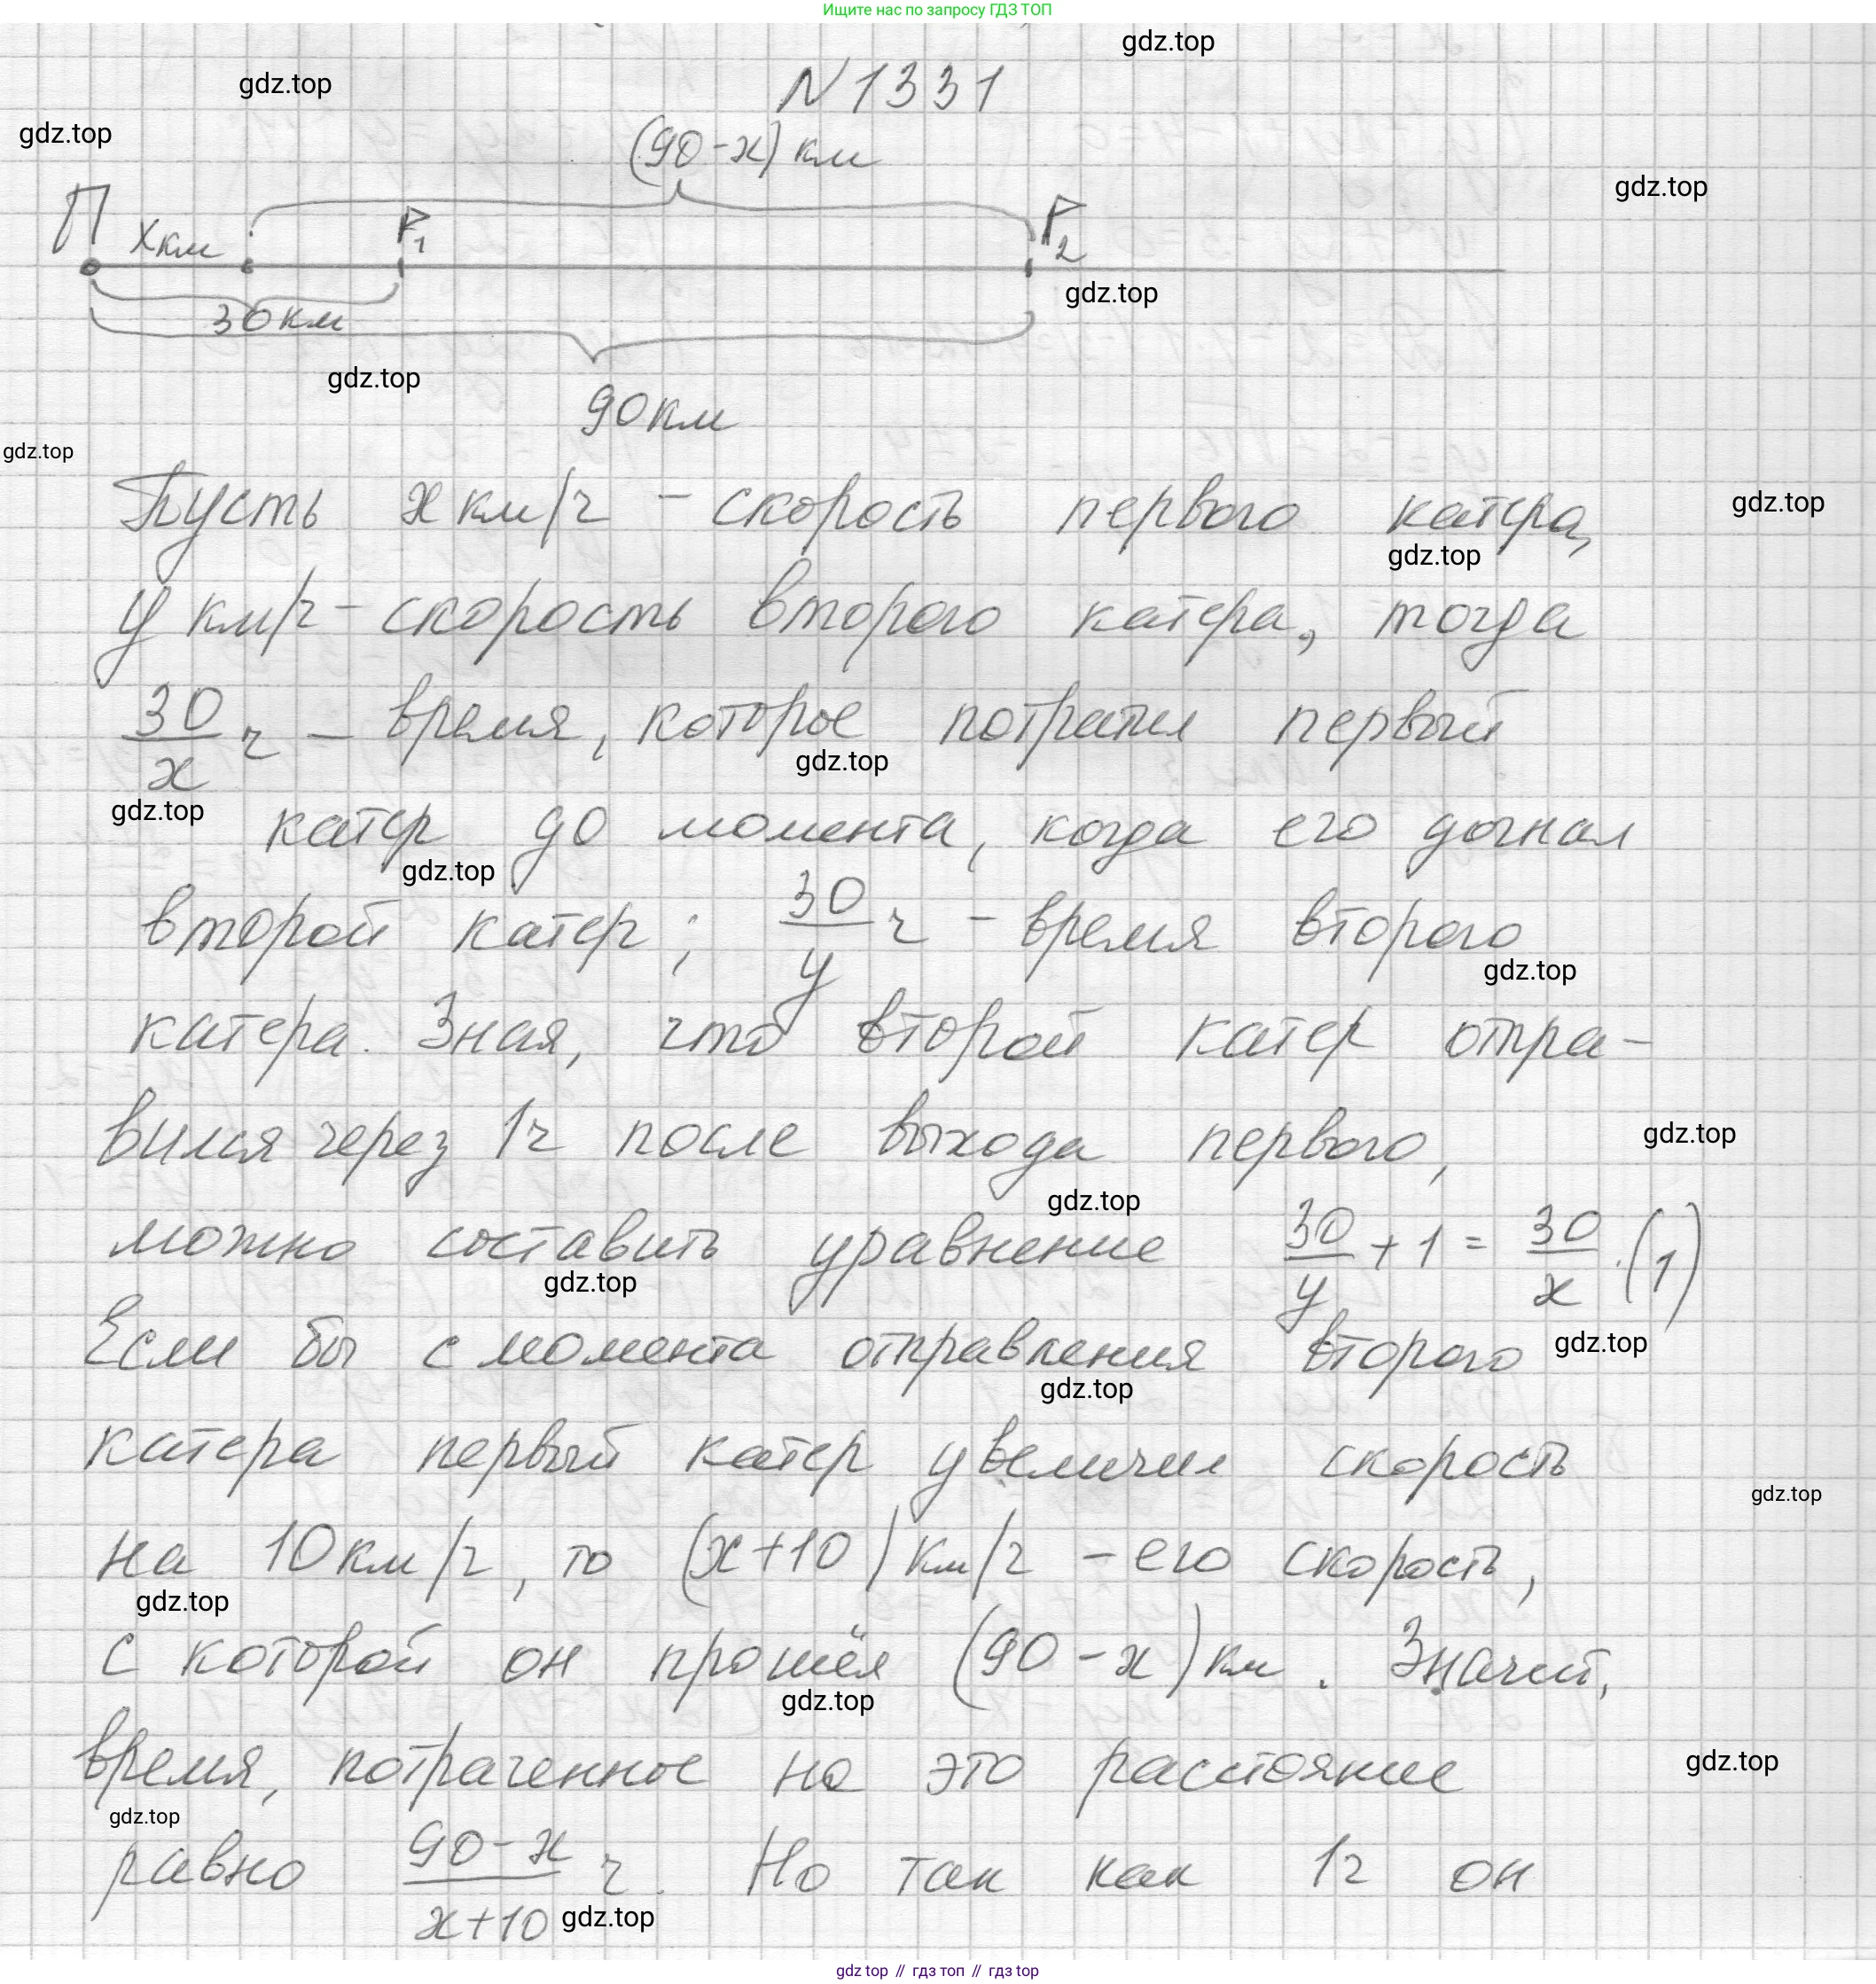 Ищите нас по запросу ГДЗ ТОП
gdz.top
N 1331
gdz.top
gdz.top
(90-x) км
gdz.top
П
x км
P1
P2
gdz.top
30 км
gdz.top
90 км
gdz.top
Пусть x км/ч - скорость первого катера,
gdz.top
gdz.top
y км/ч - скорость второго катера, тогда
30/x ч - время, которое потратил первый
gdz.top
gdz.top
катер до момента, когда его догнал
gdz.top
второй катер; 30/y ч - время второго
gdz.top
катера. Зная, что второй катер отпра-
вился через 1ч после выхода первого,
gdz.top
gdz.top
можно составить уравнение 30/y + 1 = 30/x. (1)
gdz.top
Если бы с момента отправления второго
gdz.top
gdz.top
катера первый катер увеличил скорость
gdz.top
на 10 км/ч, то (x+10) км/ч - его скорость,
gdz.top
с которой он прошёл (90-x) км. Значит,
gdz.top
время, потраченное на это расстояние
gdz.top
gdz.top
равно 90-x/x+10 ч. Но так как 1ч он
gdz.top
gdz top // гдз топ // гдз top